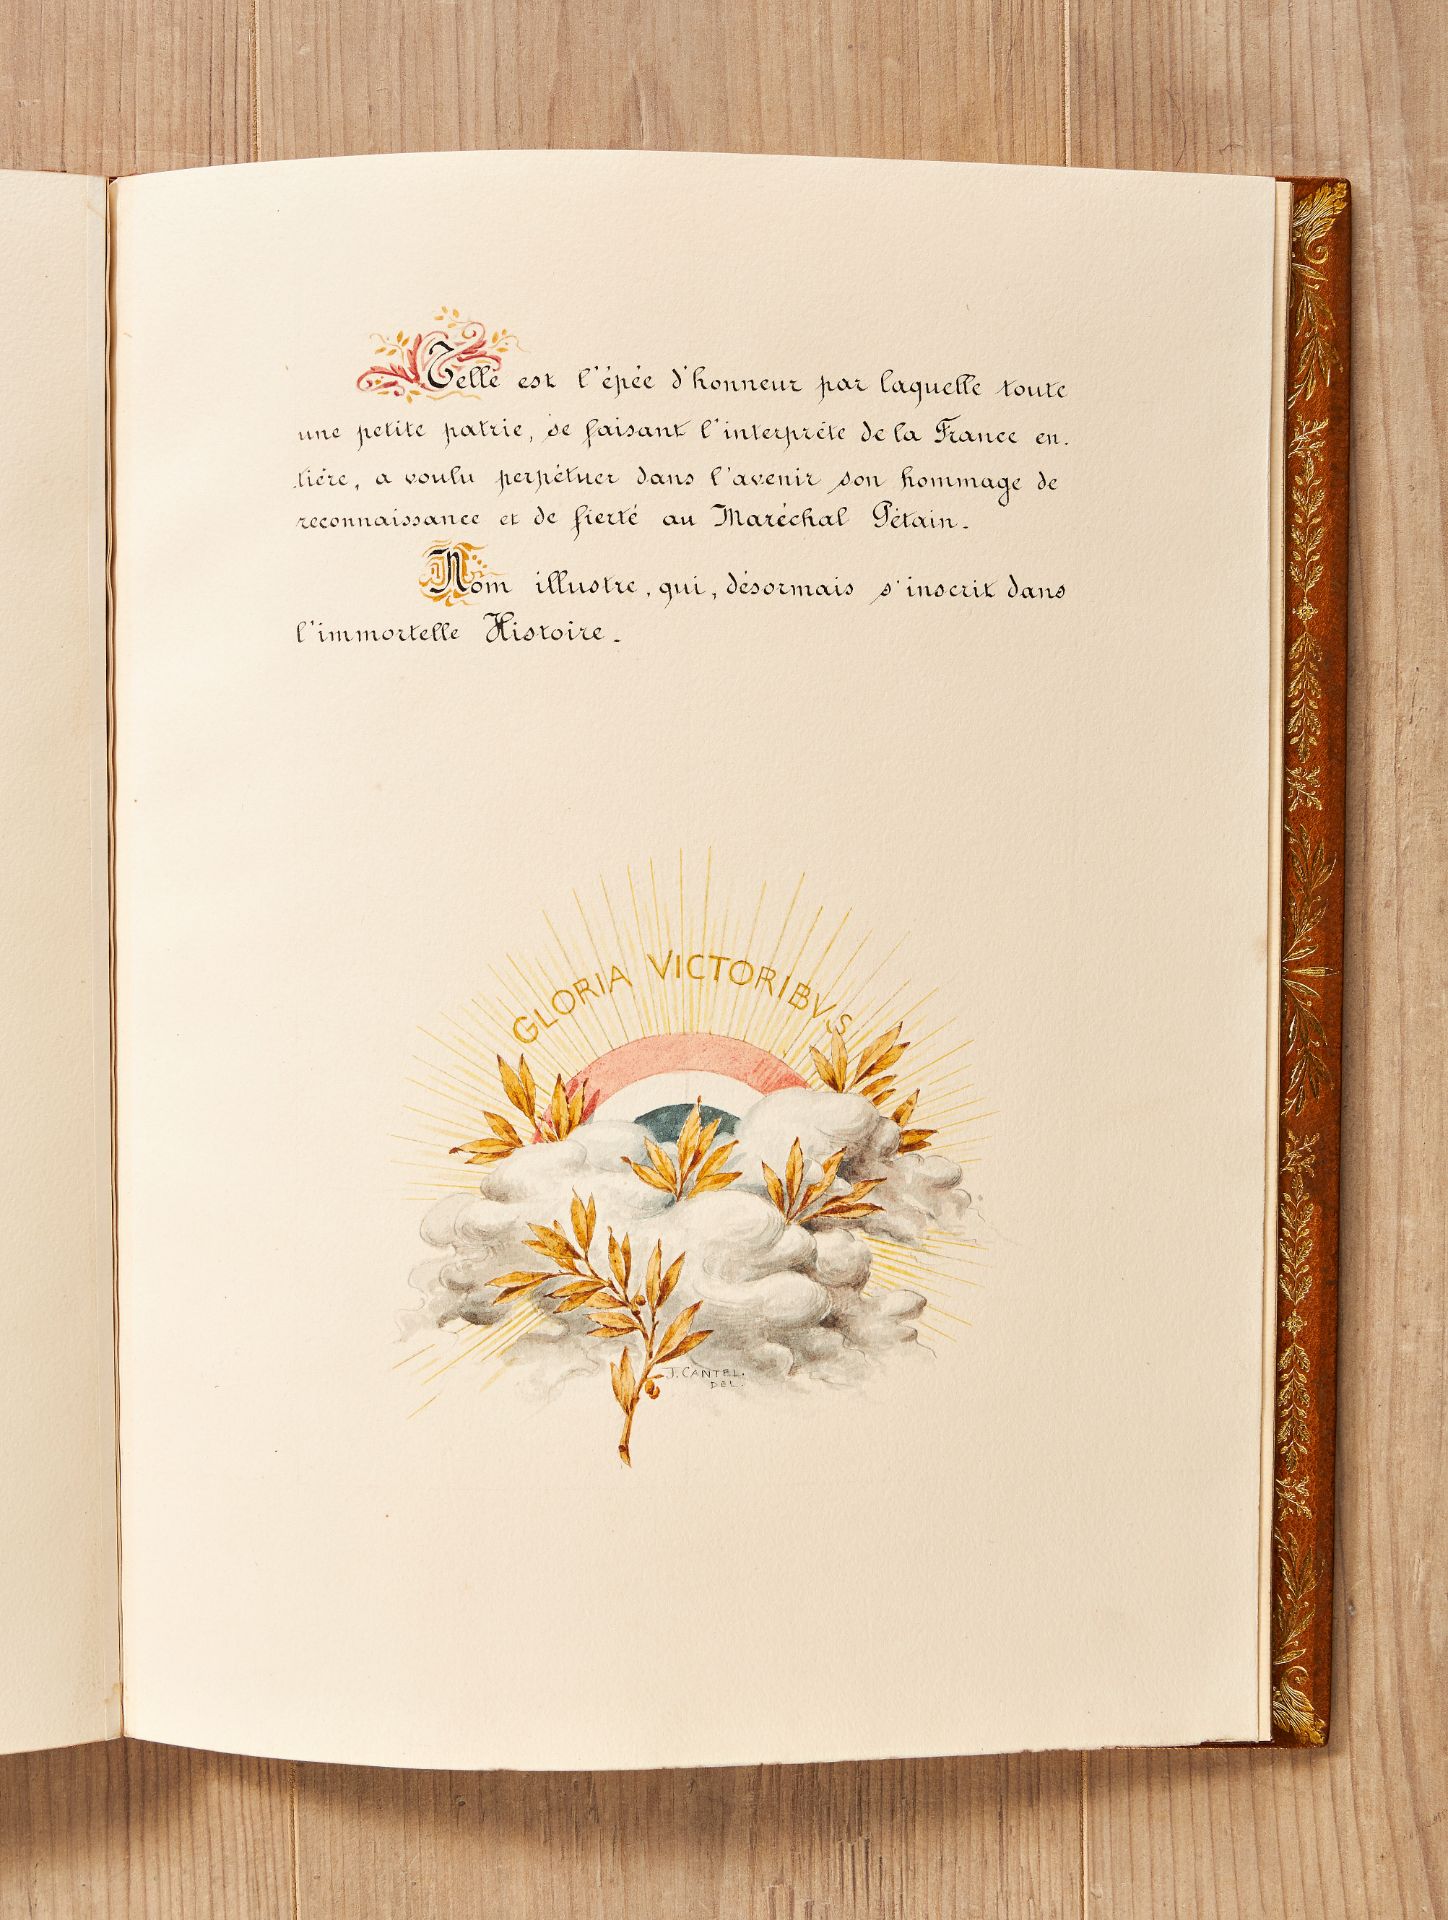 Telle est l'épée d'honneur par laquelle toute
une petite patrie, se faisant l'interprète de la France en-
tière, a voulu perpétuer dans l'avenir son hommage de
reconnaissance et de fierté au Maréchal Pétain.
Nom illustre, qui, désormais s'inscrit dans
l'immortelle Histoire.
GLORIA VICTORIBVS
J. CANTEL.
DEL.